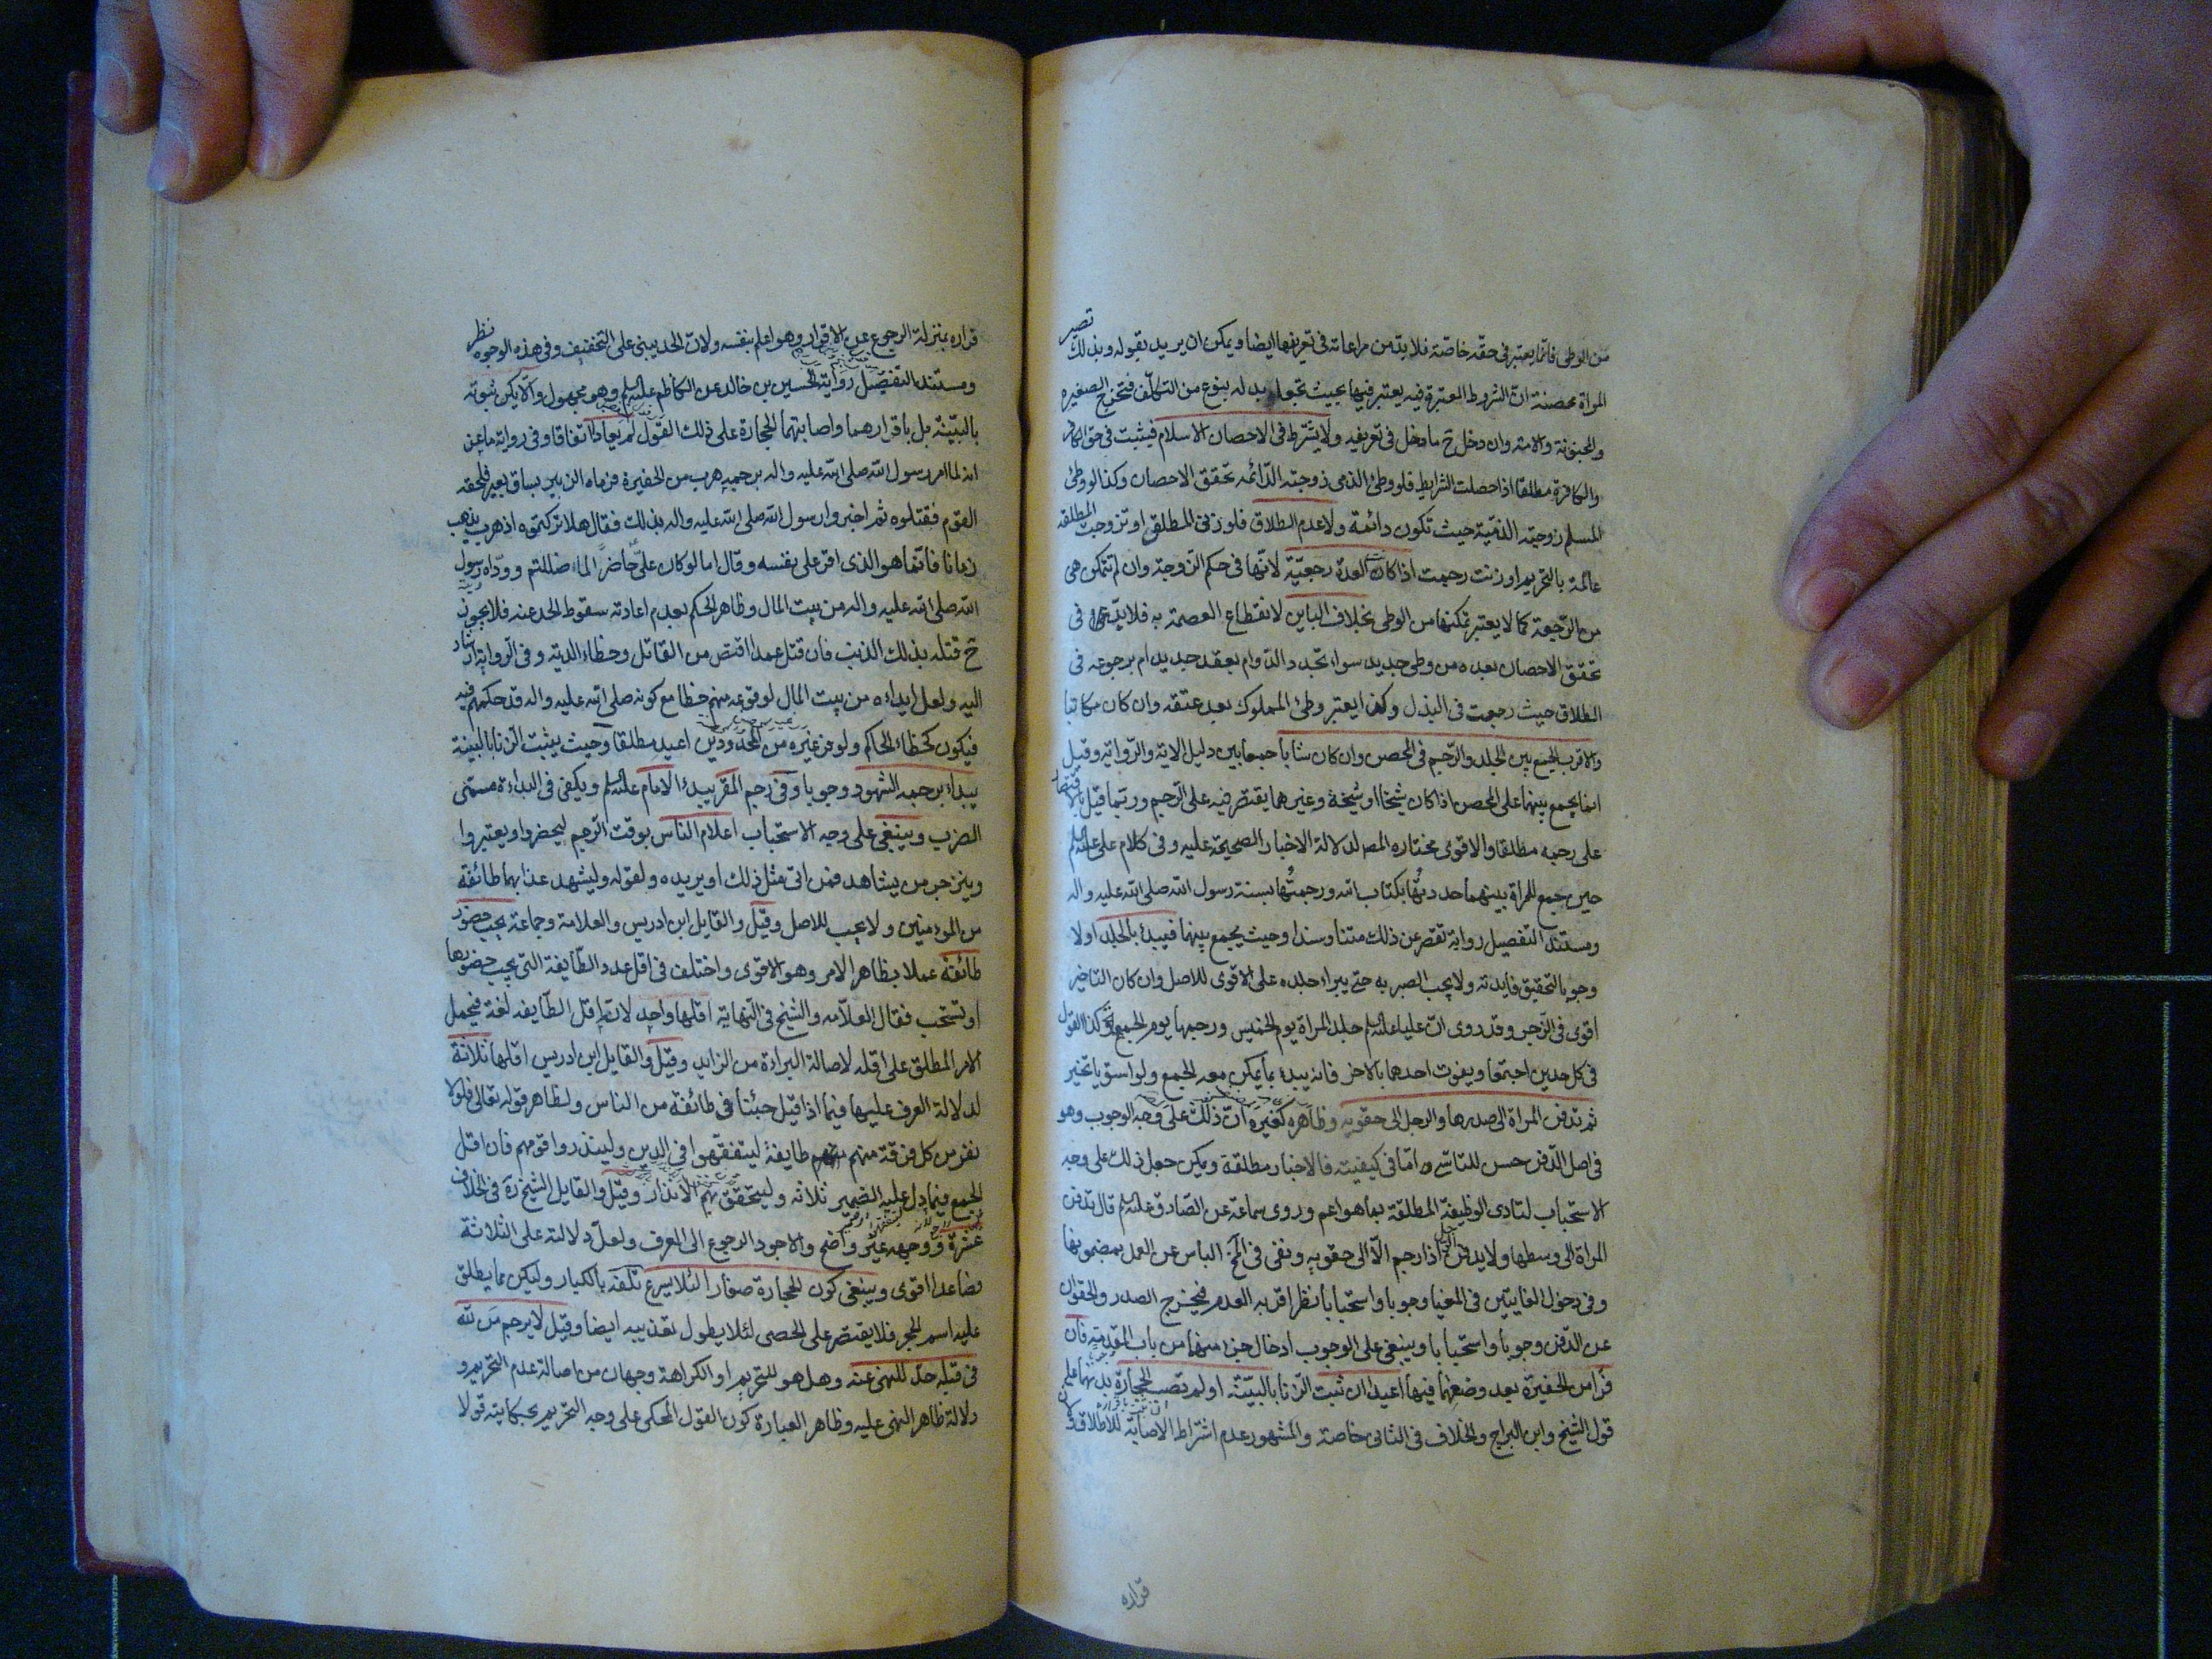 من الوطى فانما يعتبر فى حقه خاصة فلا بد من مراعاته فى تعريفها ايضا ويمكن ان يريد بقوله وبذلك تصير
المراة محصنة ان الشروط المعتبرة فيه يعتبر فيها بحيث تجعل بدله بنوع من التكلف فتخرج الصغيرة
والمجنونة والامة وان دخل ح ما دخل فى تعريفه ولا يشترط فى الاحصان الاسلام فيثبت فى حق الكافر
والكافرة مطلقا اذا حصلت الشرايط فلو وطئ الذمى زوجته الدائمه تحقق الاحصان وكذا لو وطئ
المسلم زوجته الذمية حيث تكون دائمة ولا عدم الطلاق فلو زنى المطلق او تزوجت المطلقه
عالمة بالتحريم او زنت رجمت اذا كانت العدة رجعية لانها فى حكم الزوجة وان لم تتمكن هى
من الرجعة كما لا يعتبر تمكنها من الوطى بخلاف الباين لانقطاع العصمة به فلا بد فى
تحقق الاحصان بعده من وطى جديد سواء تجدد الدوام بعقد جديد ام برجوعه فى
الطلاق حيث رجعت فى البذل وكذا يعتبر وطئ المملوك بعد عتقه وان كان مكاتبا
والاقرب الجمع بين الجلد والرجم فى المحصن وان كان شابا جمعا بين دليل الاية والرواية وقيل
انما يجمع بينهما على المحصن اذا كان شيخا او شيخة وغيرهما يقتصر فيه على الرجم وربما قيل بالاقتصار
على رجمه مطلقا والاقوى مختاره المص لدلالة الاخبار الصحيحة عليه وفى كلام على عليه السلم
حين جمع للمراة بينهما حددتها بكتاب الله ورجمتها بسنة رسول الله صلى الله عليه واله
ومستند التفصيل رواية تقصر عن ذلك متنا وسندا وحيث يجمع بينهما فيبدا بالجلد اولا
وجوبا لتحقيق فايدته ولا يجب الصبر به حتى يبراء جلده على الاقوى للاصل وان كان التاخير
اقوى فى الزجر وقد روى ان عليا عليه السلم جلد المراة يوم الخميس ورجمها يوم الجمعة وكذا القول
فى كل حدين اجتمعا ويفوت احدهما بالاخر فانه يبدء بما يمكن معه الجمع ولو استويا تخير
ثم تدفن المراة الى صدرها والرجل الى حقويه وظاهره كغيره ان ذلك على وجه الوجوب وهو
فى اصل الدفن حسن للتاسى واما فى كيفيته فالاخبار مطلقة ويمكن جعل ذلك على وجه
الاستحباب لتادى الوظيفة المطلقة بما هو اعم وروى سماعة عن الصادق عليه السلم قال تدفن
المراة الى وسطها ولا يدفن الرجل اذا رجم الا الى حقويه ونفى فى المخ الباس عن العمل بمضمونها
وفى دخول الغايتين فى المغيا وجوبا واستحبابا نظر اقربه العدم فيخرج الصدر والحقوان
عن الدفن وجوبا واستحبابا وينبغى على الوجوب ادخال جزء منهما من باب المقدمة فان
فرا من الحفيرة بعد وضعهما فيها اعيدا ان ثبت الزنا بالبينة او لم تصب الحجارة بدنهما على
قول الشيخ وابن البراج والخلاف فى الثانى خاصة والمشهور عدم اشتراط الاصابة للاطلاق ولان
قراره
قراره بمنزلة الرجوع عن الاقرار وهو اعلم بنفسه ولان الحد يبنى على التخفيف وفى هذه الوجوه نظر
ومستند التفصيل رواية الحسين بن خالد عن الكاظم عليه السلم وهو مجهول والا يكن ثبوته
بالبينة بل باقرارهما واصابتهما الحجارة على ذلك القول لم يعادا اتفاقا وفى رواية ماعز
انه لما امر رسول الله صلى الله عليه واله برجمه هرب من الحفيرة فرماه الزبير بساق بعير فلحقه
القوم فقتلوه ثم اخبروا رسول الله صلى الله عليه واله بذلك فقال هلا تركتموه اذ هرب يذهب
فانما هو الذى اقر على نفسه وقال اما لو كان على حاضرا لما ضللتم ووداه رسول
الله صلى الله عليه واله من بيت المال وظاهر الحكم بعدم اعادته سقوط الحد عنه فلا يجوز
ح قتله بذلك الذنب فان قتل عمدا اقتص من القاتل وخطاء الدية وفى الرواية ارشاد
اليه ولعل ايداءه من بيت المال لوقوعه منهم خطا مع كونه صلى الله عليه واله قد حكمهم فيه
فيكون كخطاء الحاكم ولو فر غيره من المحدودين اعيد مطلقا وحيث يثبت الزنا بالبينة
يبداء برجمه الشهود وجوبا وفى رجم المقر يبدء الامام عليه السلم ويكفى فى البداءة مسمى
الضرب وينبغى على وجه الاستحباب اعلام الناس بوقت الرجم ليحضروا ويعتبروا
وينزجر من يشاهد فمن اتى مثل ذلك او يريده ولقوله وليشهد عذابهما طائفة
من المومنين ولا يجب للاصل وقيل والقايل ابن ادريس والعلامة وجماعة يجب حضور
طائفة عملا بظاهر الامر وهو الاقوى واختلف فى اقل عدد الطايفة التى يجب حضورها
او تستحب فقال العلامه والشيخ فى النهاية اقلها واحد لانه اقل الطايفه لغة فيحمل
الامر المطلق على اقله لاصالة البراءة من الزايد وقيل والقايل ابن ادريس اقلها ثلاثة
لدلالة العرف عليها فيما اذا قيل جئنا فى طائفة من الناس ولظاهر قوله تعالى فلولا
نفر من كل فرقة منهم طايفة ليتفقهوا فى الدين ولينذروا قومهم فان اقل
الجمع فيما دل عليه الضمير ثلاثه وليتحقق بهم الانذار وقيل والقايل الشيخ ره فى الخلاف
عشرة ووجهه غير واضح والاجود الرجوع الى العرف ولعل دلالته على الثلاثة
فصاعدا اقوى وينبغى كون الحجارة صغارا لئلا يسرع تلفه بالكبار وليكن مما يطلق
عليه اسم الحجر فلا يقتصر على الحصى لئلا يطول تعذيبه ايضا وقيل لا يرجم من لله
فى قبله حد للنهى عنه وهل هو للتحريم او الكراهة وجهان من اصالة عدم التحريم و
دلالة ظاهر النهى عليه وظاهر العبارة كون القول المحكى على وجه التحريم بحكايته قولا